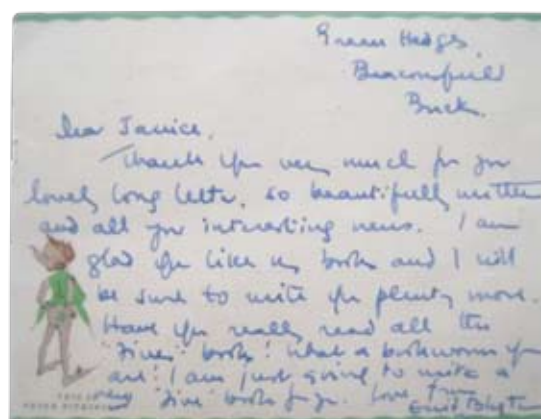 Green Hedges,
Beaconsfield
Bucks.
Dear Janice,
Thank you very much for your
lovely long letter, so beautifully written
and all your interesting news. I am
glad you like my books and I will
be sure to write you plenty more.
Have you really read all the
"Five" books! What a bookworm you
are! I am just going to write a
new "Five" book for you. Love from
Enid Blyton